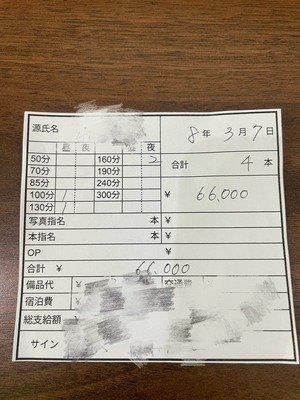 源氏名 8年 3月7日
昼 夜 昼 夜
50分 160分 2 合計 4本
70分 190分
85分 240分
100分 / 300分 ¥ 66,000
130分 /
写真指名 本 ¥
本指名 本 ¥
OP ¥
合計 ¥ 66,000
備品代 ¥ 交通費
宿泊費 ¥
総支給額
サイン